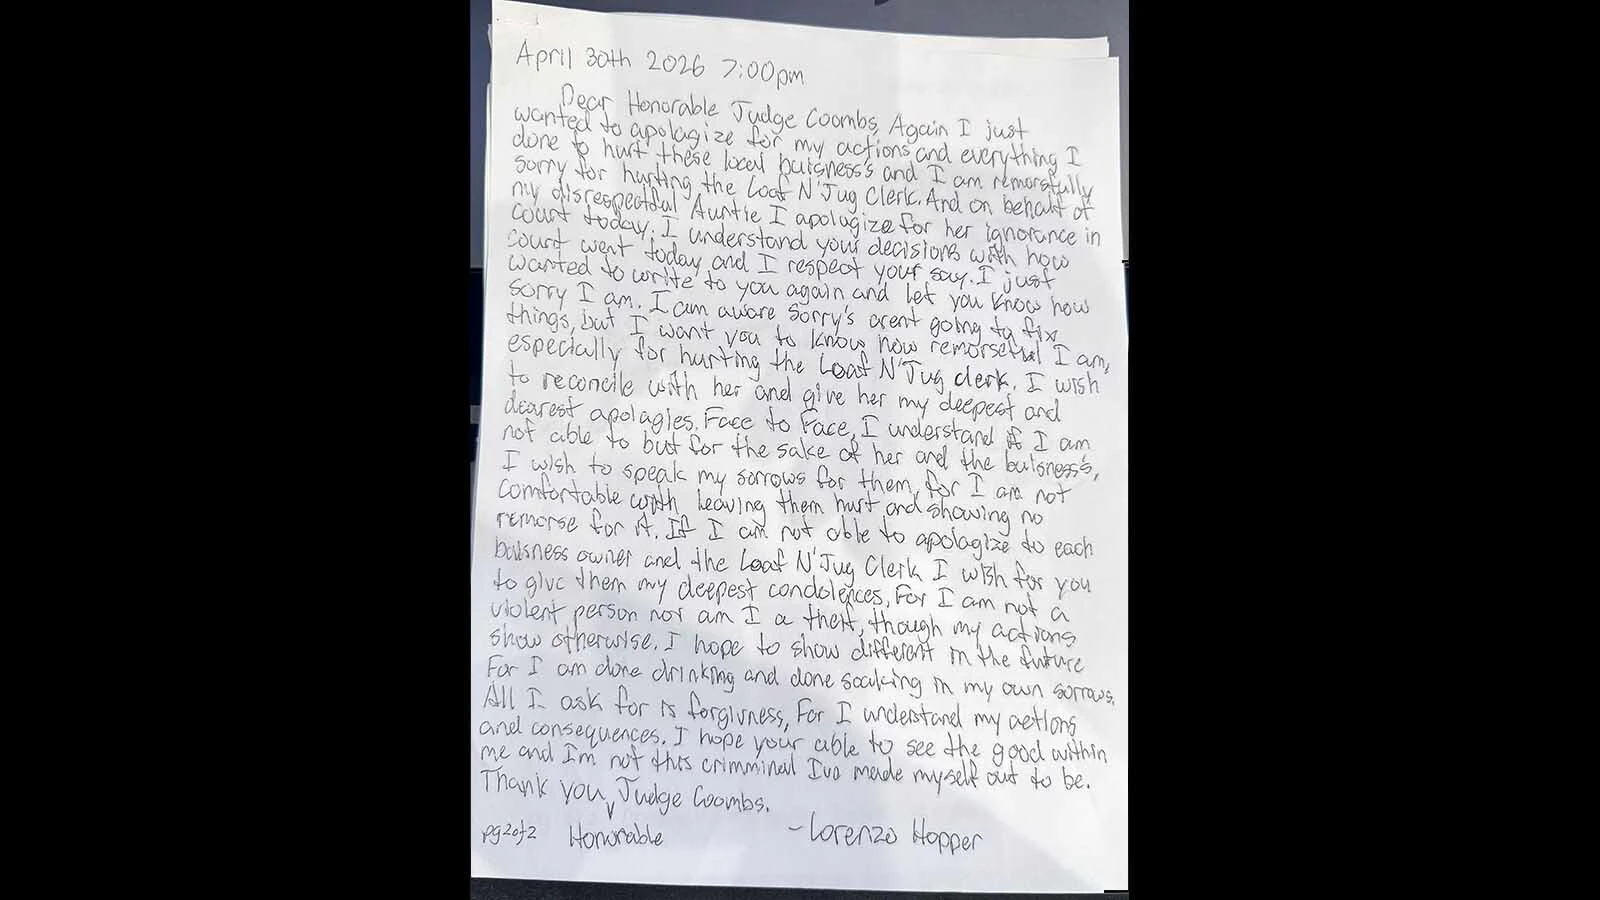 April 30th 2026 7:00pm
Dear Honorable Judge Coombs, Again I just
wanted to apolagize for my actions and everything I
done to hurt these local buisness's and I am remorsfully
sorry for hurting the Loaf N' Jug Clerk. And on behalf of
my disrespectful Auntie I apolagize for her ignorance in
court today. I understand your decisions with how
court went today and I respect your say. I just
wanted to write to you again and let you know how
sorry I am. I am aware sorry's arent going to fix
things, but I want you to know how remorseful I am,
especially for hurting the Loaf N' Jug clerk. I wish
to reconcile with her and give her my deepest and
dearest apolagies. Face to Face, I understand if I am
not able to but for the sake of her and the buisness's,
I wish to speak my sorrows for them, for I am not
comfortable with leaving them hurt and showing no
remorse for it. If I am not able to apolagize to each
buisness owner and the Loaf N' Jug Clerk I wish for you
to give them my deepest condolences, For I am not a
violent person nor am I a theft, though my actions
show otherwise. I hope to show different in the future
For I am done drinking and done soaking in my own sorrows.
All I ask for is forgivness, For I understand my actions
and consequences. I hope your able to see the good within
me and I'm not this crimminal Ive made myself out to be.
Thank you, Judge Coombs.
pg 2 of 2 Honorable - Lorenzo Hopper